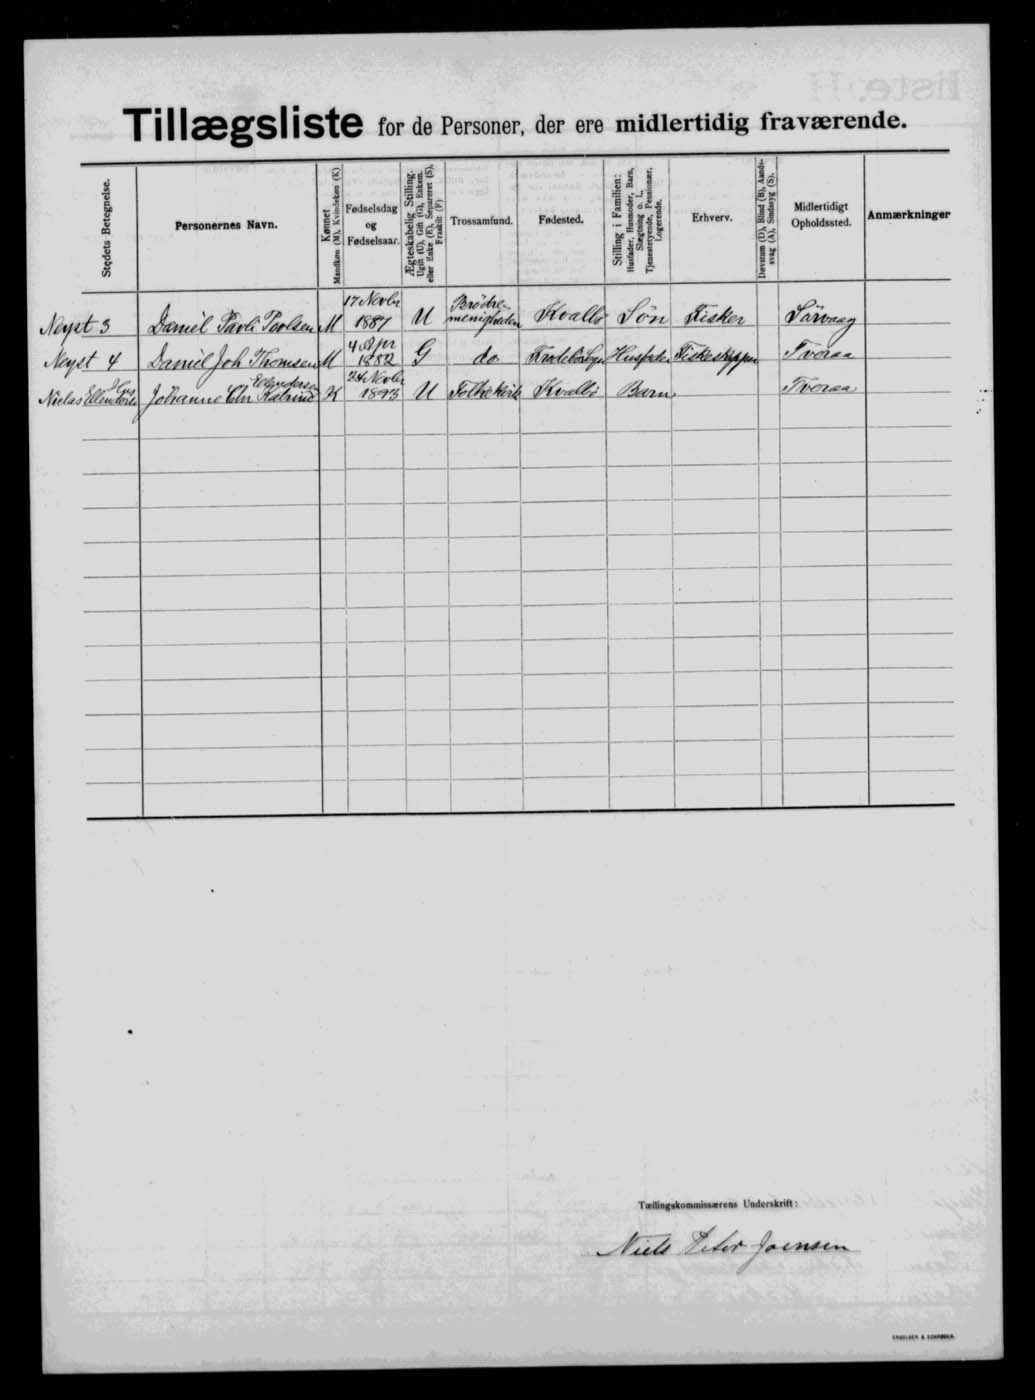 Tillægsliste for de Personer, der ere midlertidig fraværende.
Stedets Betegnelse.
Personernes Navn.
Kønnet
Mandkøn (M), Kvindekøn (K)
Fødselsdag
og
Fødselsaar.
Ægteskabelig Stilling.
Ugift (U), Gift (G), Enkem.
eller Enke (E), Separeret (S),
Fraskilt (F)
Trossamfund.
Fødested.
Stilling i Familien:
Husfader, Husmoder, Barn,
Slægtning o. l.,
Tjenestetyende, Pensionær,
Logerende.
Erhverv.
Døvstum (D), Blind (B), Aands-
svag (A), Sindssyg (S).
Midlertidigt
Opholdssted.
Anmærkninger
Neyst 3 Daniel Pavli Poulsen M 17 Novbr 1887 U Brödre-menigheden Kvalbø Søn Fisker Sörvaag
Neyst 4 Daniel Joh Thomsen M 4 Apr 1852 G do Husfader Fiskeskipper Tvoraa
Johanne Chr Katrine K 24 Novbr 1893 U Folkekirke Kvalbø Barn Tvoraa
Tællingskommissærens Underskrift:
Niels Peter Joensen